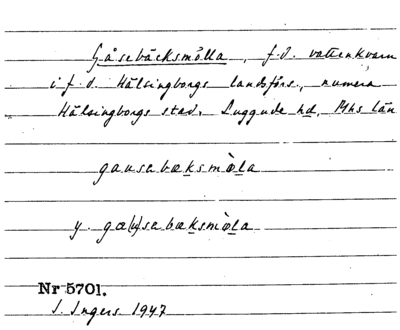 Gåsebäcksmölla, f.d. vattenkvarn
i f.d. Hälsingborgs landsförs., numera
Hälsingborgs stad. Luggude hd, Mhs län
gausebæksmòla
y. gæ(u)sebæksmòla
Nr 5701.
I. Ingers 1947